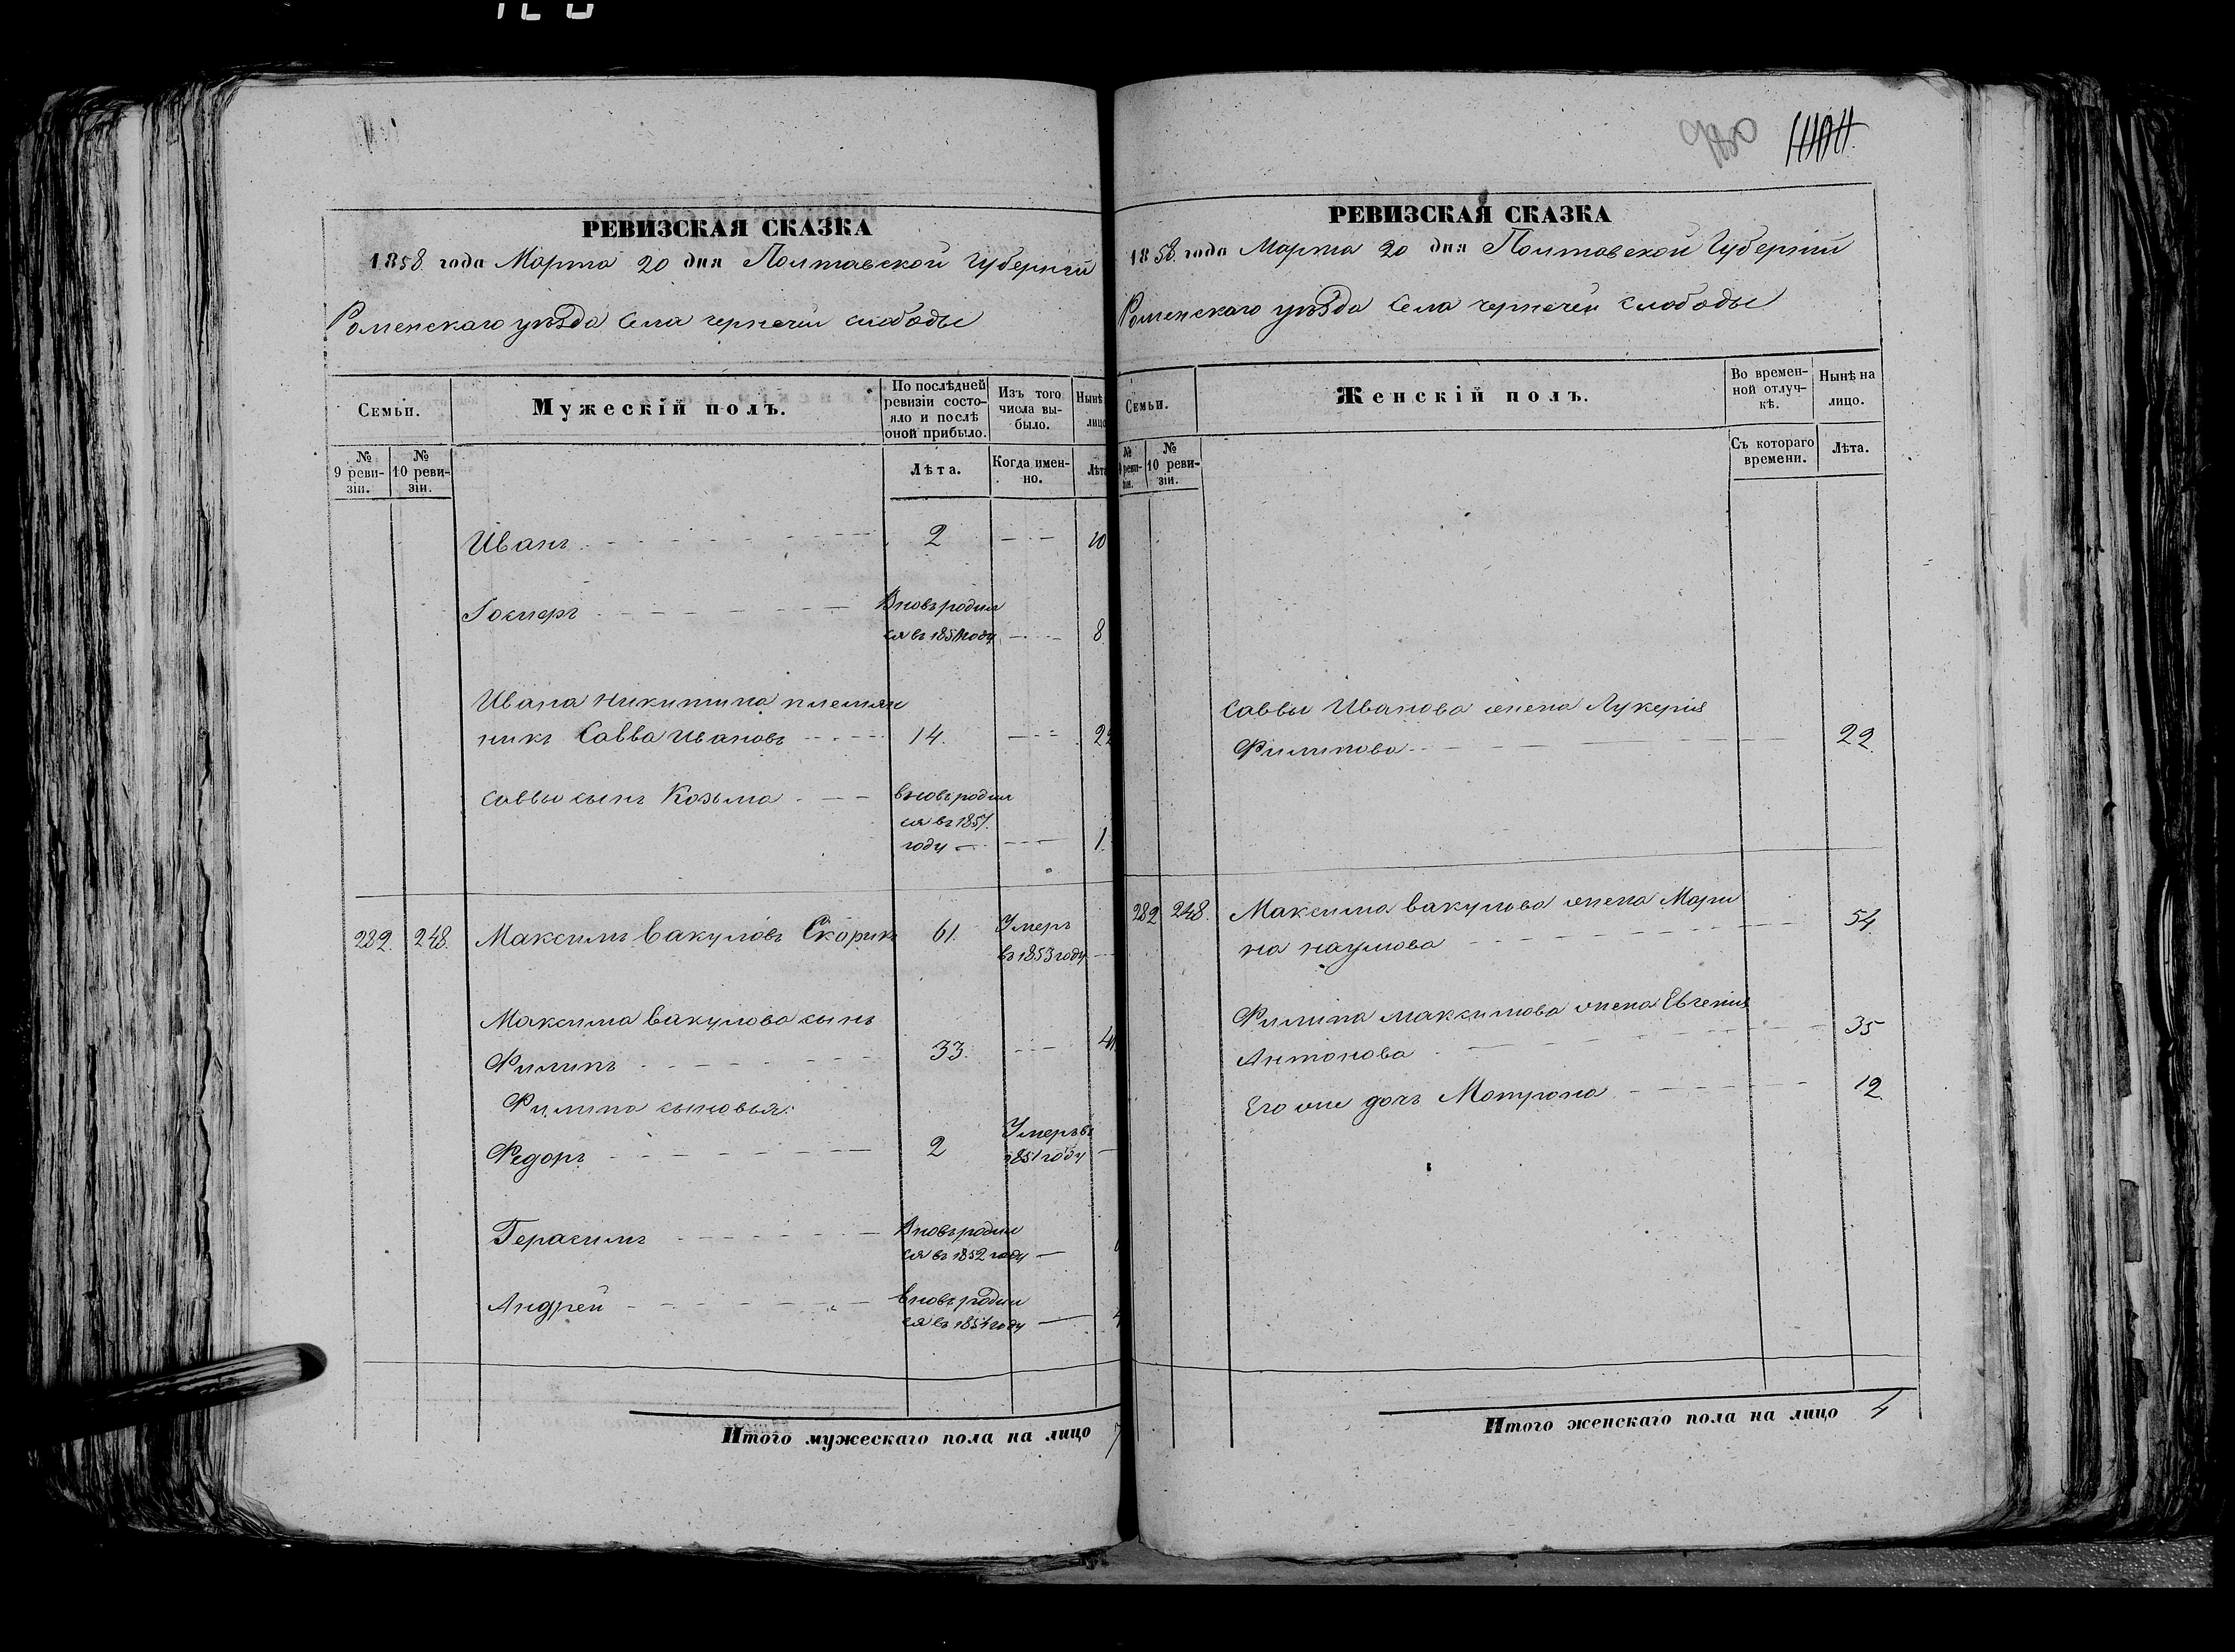 980
РЕВИЗСКАЯ СКАЗКА
1858 года Марта 20 дня Полтавской Губерніи
Роменскаго уѣзда Села чернечей слободы
Семьи.
Мужескій полъ.
По послѣдней ревизіи состояло и послѣ оной прибыло.
Изъ того числа выбыло.
Нынѣ
лицо
№ 9 ревизіи.
№ 10 ревизіи.
Лѣта.
Когда именно.
Лѣта
Иванъ 2 10
вновь родил
ся въ году 8
Ивана Никитина племян
никъ Савва Ивановъ 14. 22
Саввы сынъ Козьма вновь родил
ся въ 1857.
году 1.
282. 248. Максимъ Вакуловъ Скорик 61. Умеръ
въ 1853 году
Максима Вакулова сынъ
Филипъ 33. 41
Филипа сыновья:
Федоръ 2 Умеръ въ
1851 году
Герасимъ Вновь родил
ся въ 1852 году
Андрей вновь родил
ся въ 1854 году 4
Итого мужескаго пола на лицо 7
РЕВИЗСКАЯ СКАЗКА
1858. года Марта 20 дня Полтавской Губерніи
Роменскаго уѣзда Села чернечей слободы
Семьи.
Женскій полъ.
Во временной отлучкѣ.
Нынѣ на лицо.
№ 9 ревизіи.
№ 10 ревизіи.
Съ котораго времени.
Лѣта.
Саввы Иванова жена Лукерія
Филипова 22.
282 248. Максима Вакулова жена Мари
на Наумова 54
Филипа Максимова жена Евгенія
Антонова 35
Его же дочь Матрона 12.
Итого женскаго пола на лицо 4